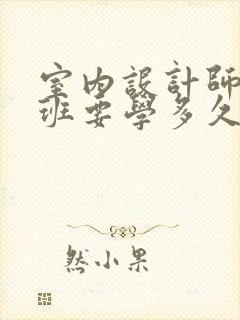 室內設計師
班要學多久
然小果